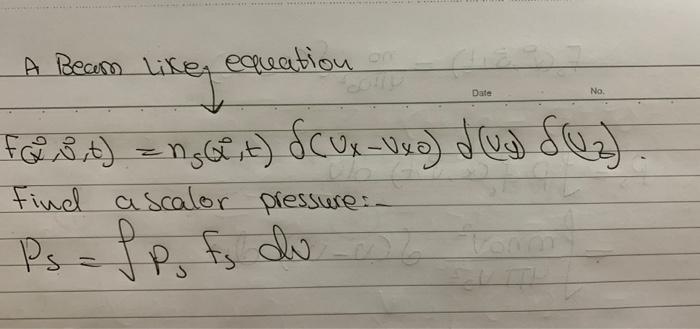 A Beam like equation
Date
No.
f(x⃗, v⃗, t) = n_s(x⃗, t) δ(v_x - v_x0) δ(v_y) δ(v_z).
Find a scalor pressure:-
P_s = ∫ P_s f_s dv